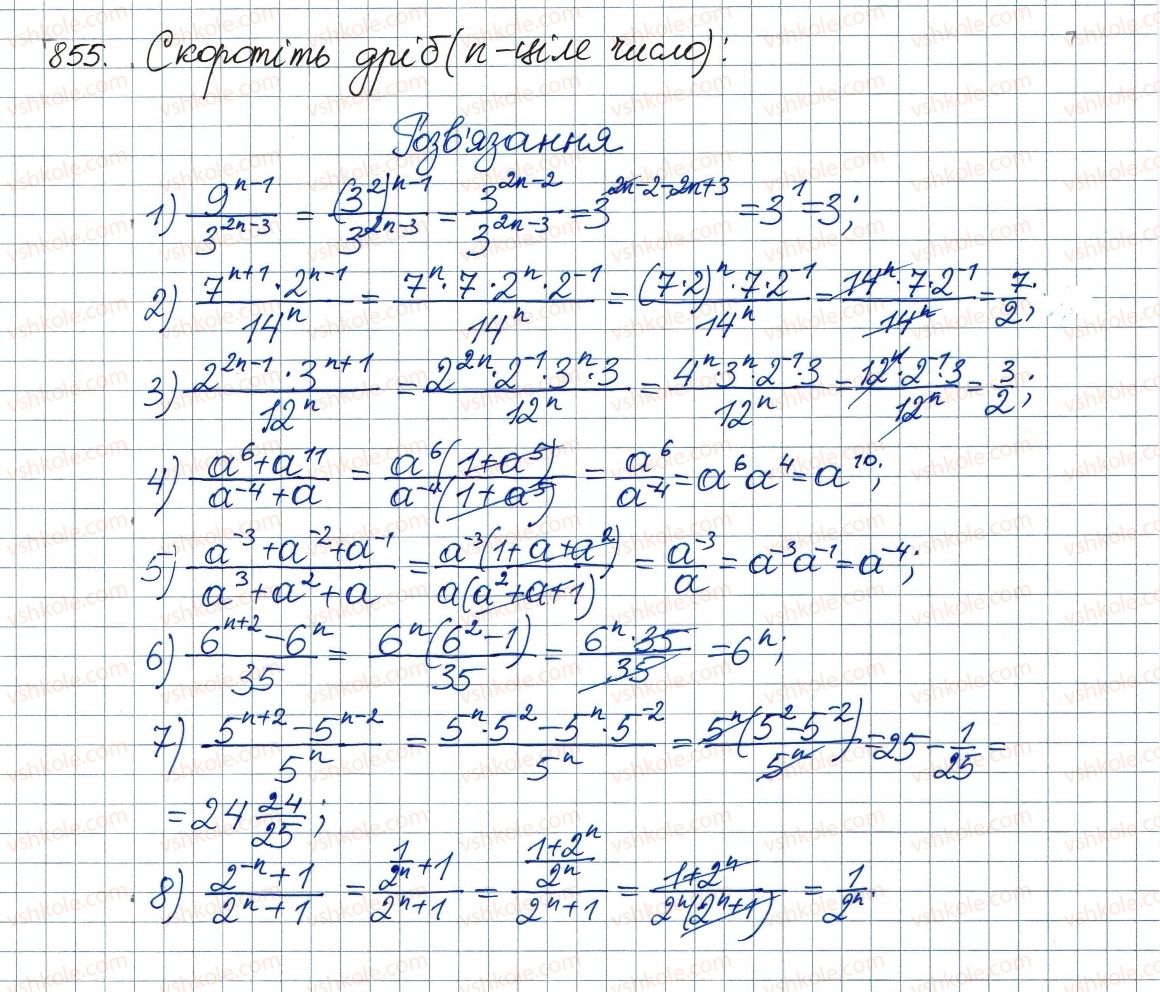 855. Скоротіть дріб (n-ціле число):
Розв'язання
1) \frac{9^{n-1}}{3^{2n-3}} = \frac{(3^2)^{n-1}}{3^{2n-3}} = \frac{3^{2n-2}}{3^{2n-3}} = 3^{2n-2-2n+3} = 3^1 = 3;
2) \frac{7^{n+1} \cdot 2^{n-1}}{14^n} = \frac{7^n \cdot 7 \cdot 2^n \cdot 2^{-1}}{14^n} = \frac{(7 \cdot 2)^n \cdot 7 \cdot 2^{-1}}{14^n} = \frac{14^n \cdot 7 \cdot 2^{-1}}{14^n} = \frac{7}{2};
3) \frac{2^{2n-1} \cdot 3^{n+1}}{12^n} = \frac{2^{2n} \cdot 2^{-1} \cdot 3^n \cdot 3}{12^n} = \frac{4^n \cdot 3^n \cdot 2^{-1} \cdot 3}{12^n} = \frac{12^n \cdot 2^{-1} \cdot 3}{12^n} = \frac{3}{2};
4) \frac{a^6+a^{11}}{a^{-4}+a} = \frac{a^6(1+a^5)}{a^{-4}(1+a^5)} = \frac{a^6}{a^{-4}} = a^6a^4 = a^{10};
5) \frac{a^{-3}+a^{-2}+a^{-1}}{a^3+a^2+a} = \frac{a^{-3}(1+a+a^2)}{a(a^2+a+1)} = \frac{a^{-3}}{a} = a^{-3}a^{-1} = a^{-4};
6) \frac{6^{n+2}-6^n}{35} = \frac{6^n(6^2-1)}{35} = \frac{6^n \cdot 35}{35} = 6^n;
7) \frac{5^{n+2}-5^{n-2}}{5^n} = \frac{5^n \cdot 5^2-5^n \cdot 5^{-2}}{5^n} = \frac{5^n(5^2-5^{-2})}{5^n} = 25-\frac{1}{25} =
= 24\frac{24}{25};
8) \frac{2^{-n}+1}{2^n+1} = \frac{\frac{1}{2^n}+1}{2^n+1} = \frac{\frac{1+2^n}{2^n}}{2^n+1} = \frac{1+2^n}{2^n(2^n+1)} = \frac{1}{2^n}.
vshkole.com